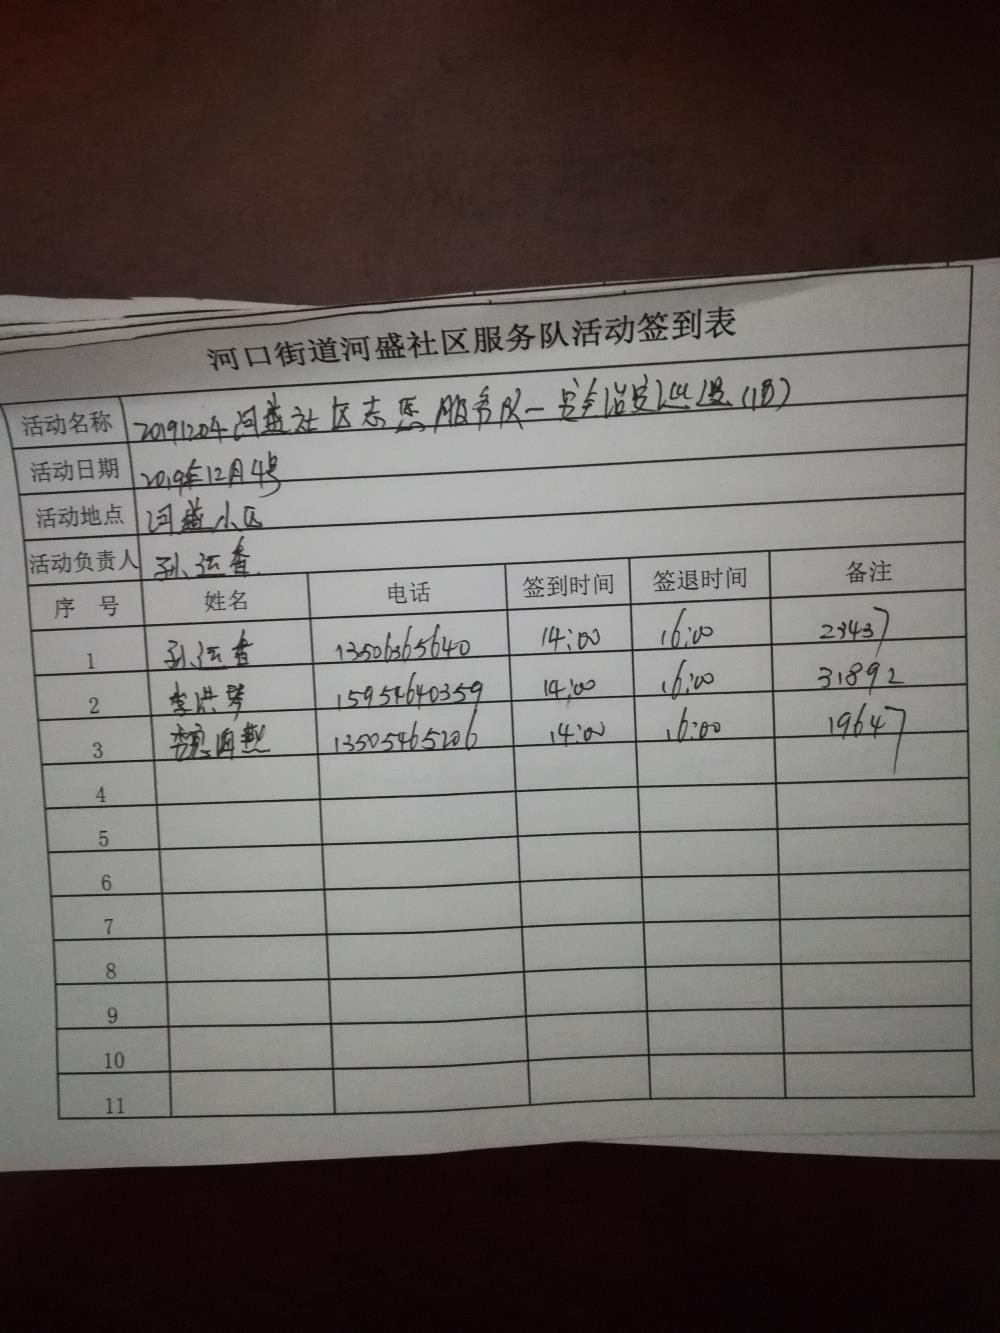 河口街道河盛社区服务队活动签到表
活动名称 20191204河盛社区志愿服务队一安全治安巡逻(1B)
活动日期 2019年12月4号
活动地点 河盛小区
活动负责人 孙运香
序 号 姓名 电话 签到时间 签退时间 备注
1 孙运香 13506365640 14:00 16:00 23437
2 李洪琴 15954640359 14:00 16:00 31892
3 13505465206 14:00 16:00 19647
4
5
6
7
8
9
10
11